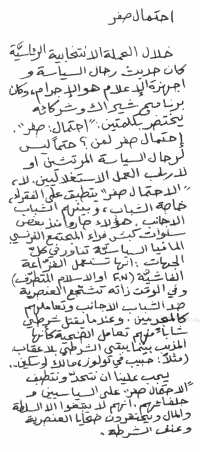 احتمال صفر
خلال الحملة الانتخابية الرئاسيّة
كان حديث رجال السياسة و
اجهزة الإعلام هو الإجرام، وكان
برنامج شيراك وشركائه
يختصر بكلمتين: "إحتمال: صفر".
إحتمال صفر لمن؟ حتماً ليس
لرجال السياسة المرتشين او
لارباب العمل الاستغلاليين. لا،
"الاحتمال صفر" ينطبق على الفقراء،
خاصة الشباب، وبينهم الشباب
الاجانب. هؤلاء صاروا منذ بعض
سنوات كبش فداء المجتمع الفرنسي
المافيا السياسيّة تناور في كل
الجهات: انها تستعمل الفزّاعة
الفاشيّة (F.N) او الاسلام المتطرّف)
وفي الوقت ذاته تشجع العنصرية
ضد الشباب الاجانب وتعاملهم
كالمجرمين. وعندما يقتل شرطي
شاباً منهم تعامل الضحية كأنها
المذنب بينما يبقى الشرطي بلا عقاب
(مثلاً: حبيب في تولوز، مالك لوسكين..
يجب علينا ان نتحدّ ونطبق
"الاحتمال صفر" على السياسيين و
حلفائهم. انهم لا يبتغوا الا السلطة
والمال ويحتقرون ضحايا العنصرية
وعنف الشرطة.